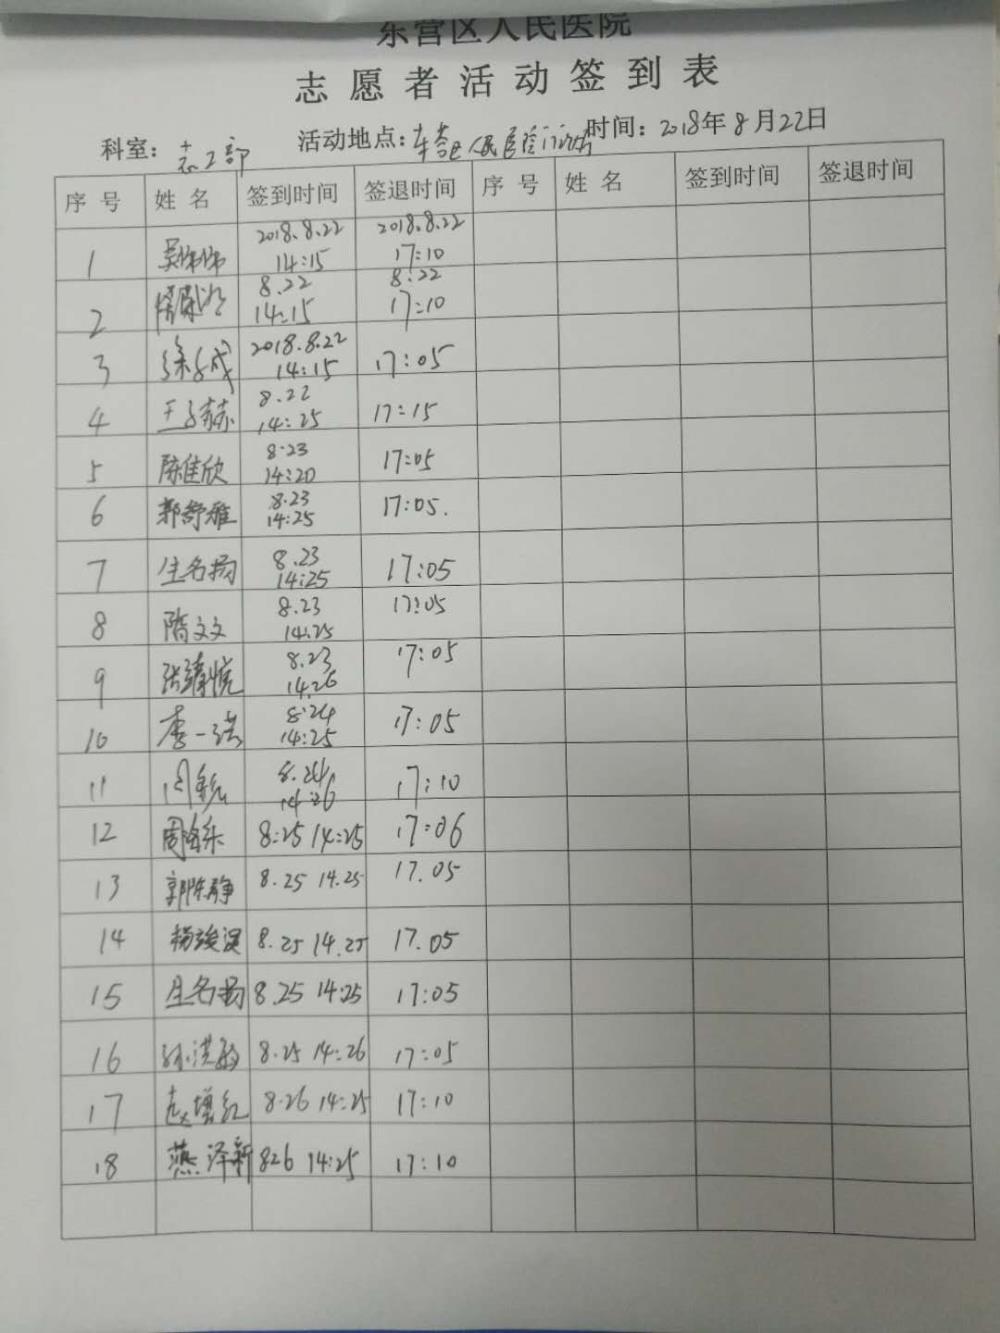 东营区人民医院
志愿者活动签到表
科室：志工部 活动地点：东营区人民医院门诊 时间：2018年8月22日
序号 姓名 签到时间 签退时间 序号 姓名 签到时间 签退时间
1 2018.8.22 14:15 2018.8.22 17:10
2 8.22 14:15 8.22 17:10
3 2018.8.22 14:15 17:05
4 8.22 14:25 17:15
5 陈佳欣 8.23 14:20 17:05
6 郭舒雅 8.23 14:25 17:05.
7 生名扬 8.23 14:25 17:05
8 隋文文 8.23 14:25 17:05
9 8.23 14:26 17:05
10 8.24 14:25 17:05
11 8.24 14:26 17:10
12 8:25 14:25 17:06
13 8.25 14.25 17.05
14 8.25 14.25 17.05
15 生名扬 8.25 14:25 17:05
16 8.25 14:26 17:05
17 8.26 14:25 17:10
18 燕泽新 826 14:25 17:10